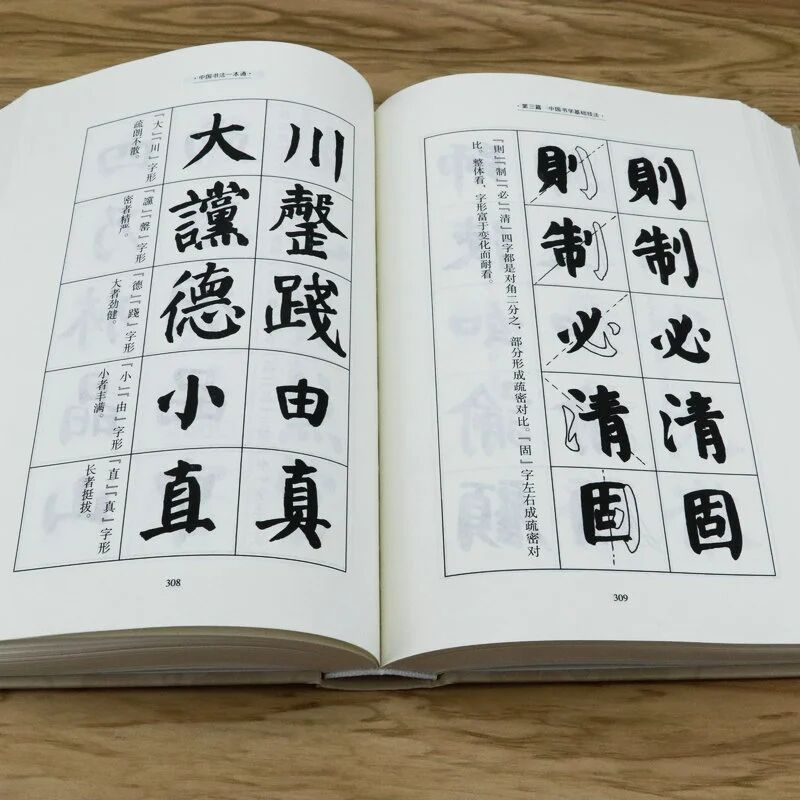 ·中国书法一本通·
大 川
「大」「川」字形
疏朗不散。
讜
「讜」「」字形
密者精严。
德 踐
「德」「踐」字形
大者劲健。
小 由
「小」「由」字形
小者丰满。
直 真
「直」「真」字形
长者挺拔。
308
·第三篇 中国书学基础技法·
則 則
制 制
必 必
清 清
固 固
「則」「制」「必」「清」四字都是对角二分之，部分形成疏密对比。「固」字左右成疏密对
比。整体看，字形富于变化而耐看。
309